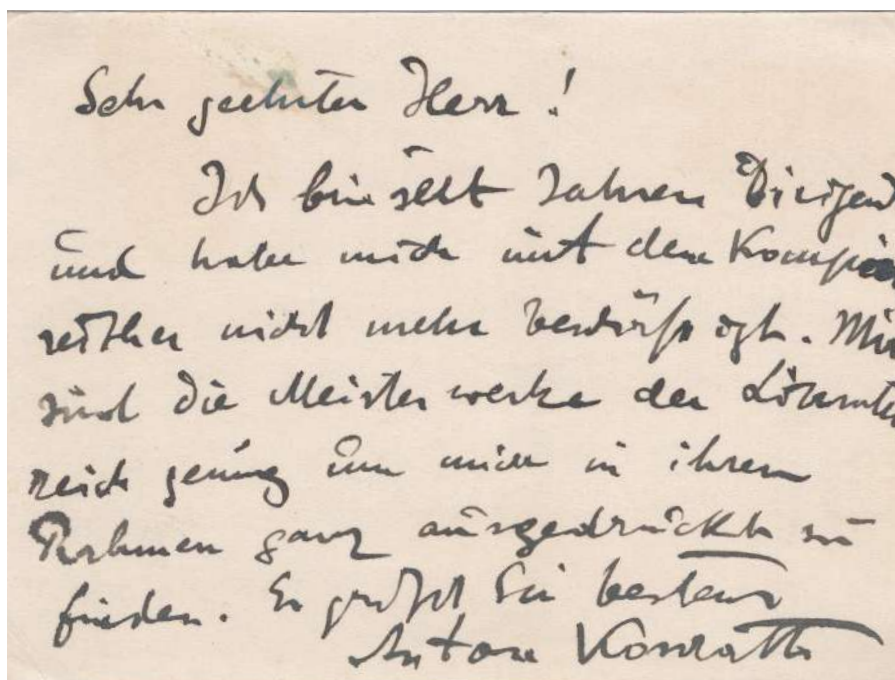 Sehr geehrter Herr!
Ich bin seit Jahren Dirigent
und habe mich mit dem Kompo
seither nicht mehr beschäftigt. Mir
sind die Meisterwerke der Literatur
reich genug um mich in ihrem
Rahmen ganz ausgedrückt zu
finden. Es grüßt Sie bestens
Anton Konrath